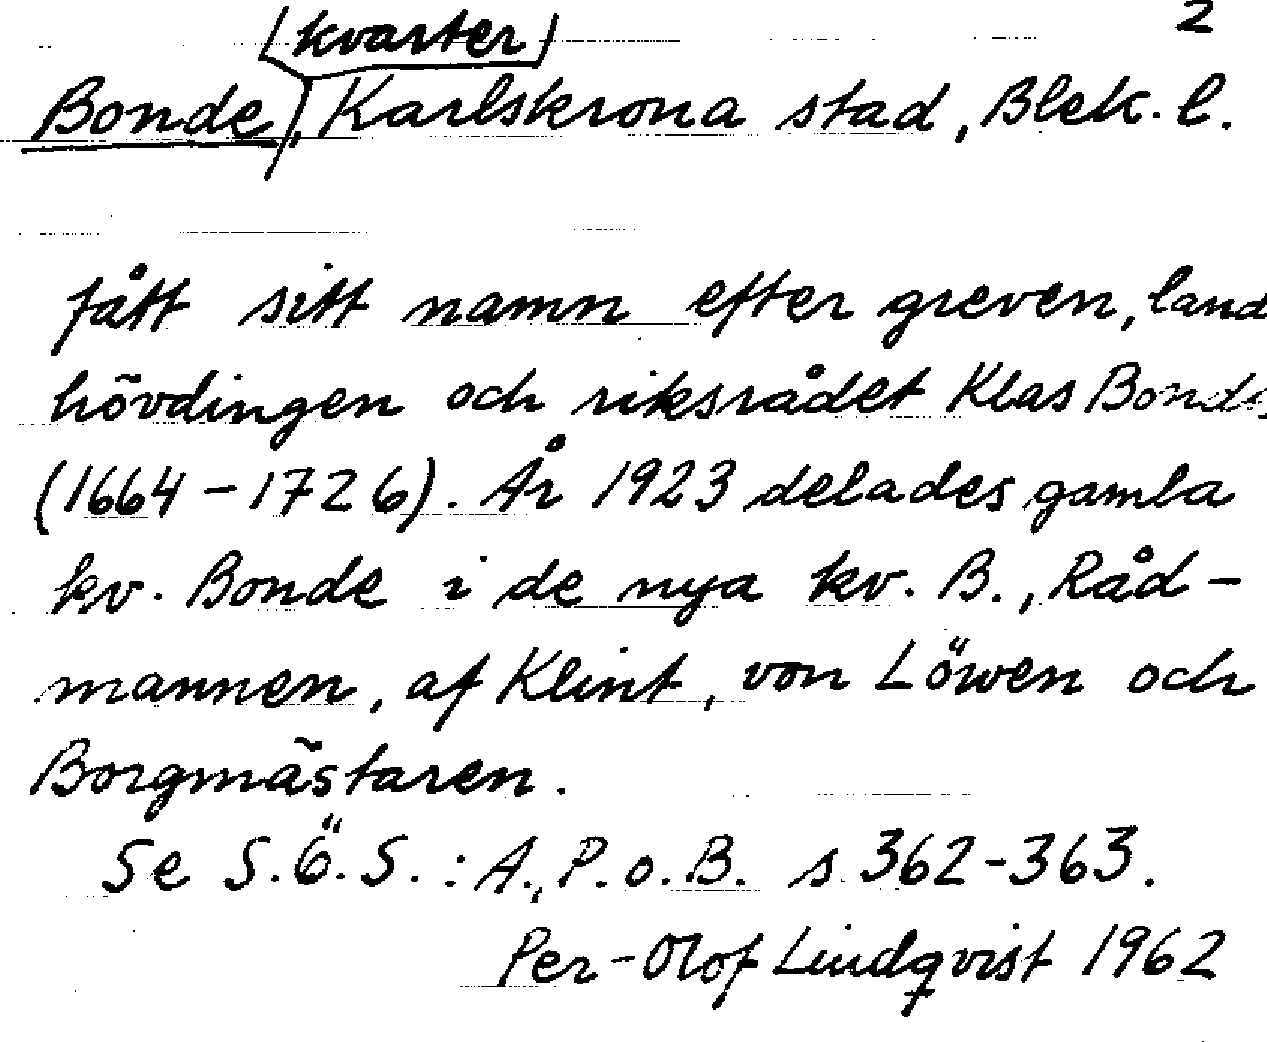 2
(kvarter)
Bonde, Karlskrona stad, Blek. l.
fått sitt namn efter greven, land
hövdingen och riksrådet Klas Bonde
(1664-1726). År 1923 delades gamla
kv. Bonde i de nya kv. B., Råd-
mannen, af Klint, von Löwen och
Borgmästaren.
Se S.Ö.S.: A., P. o. B. s 362-363.
Per-Olof Lindqvist 1962